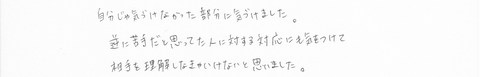 自分じゃ気づけなかった部分に気づけました。
逆に苦手だと思ってた人に対する対応にも気をつけて
相手を理解しなきゃいけないと思いました。